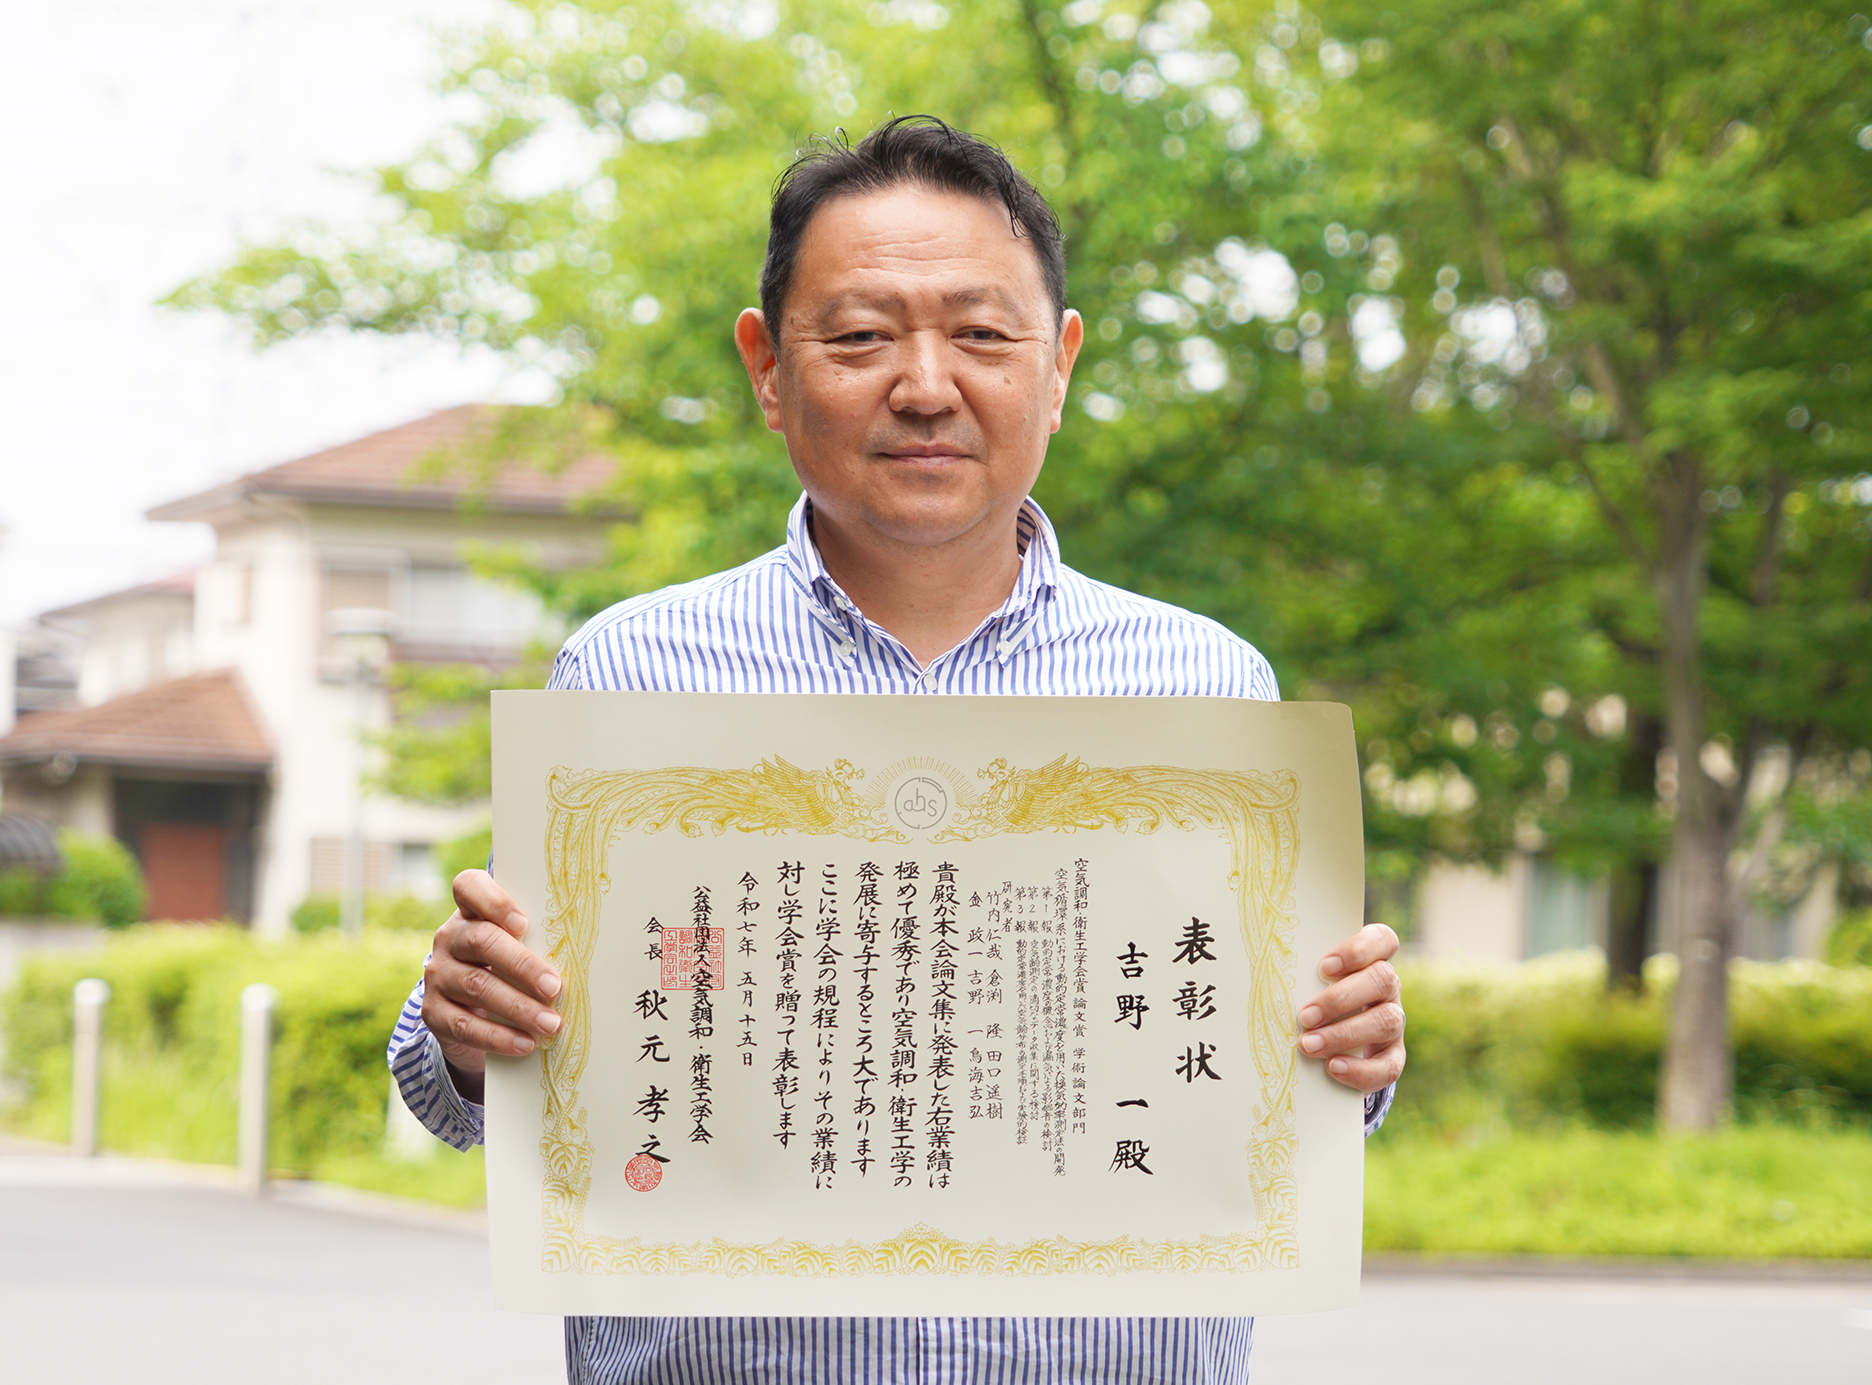 abs
表彰状
吉野 一 殿
空気調和・衛生工学会賞 論文賞 学術論文部門
空気循環系における動的定常濃度を用いた換気効率測定法の開発
第1報 動的定常濃度の概念および漏気による影響の検討
第2報 空気齢測定の適切なデータ収集に関する検討
研究者
竹内仁哉 倉渕 隆 田口遥樹
金 政一 吉野 一 鳥海吉弘
貴殿が本会論文集に発表した右業績は
極めて優秀であり空気調和・衛生工学の
発展に寄与するところ大であります
ここに学会の規程によりその業績に
対し学会賞を贈って表彰します
令和七年 五月十五日
公益社団法人 空気調和・衛生工学会
会長 秋元孝之